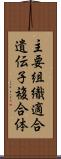 主要組織適合
遺伝子複合体